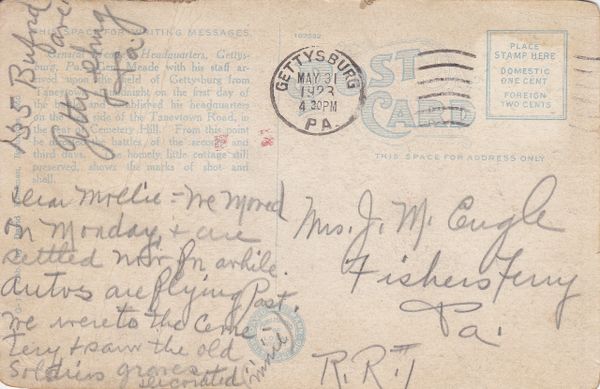 THIS SPACE FOR WRITING MESSAGES.
General Headquarters, Gettys-
burg, Pa. Gen. Meade with his staff ar-
rived upon the field of Gettysburg from
Taneytown midnight on the first day of
the battle and established his headquarters
on the side of the Taneytown Road, in
the rear of Cemetery Hill. From this point
he battles of the second and
third days. The homely little cottage still
preserved, shows the marks of shot and
shell.
155 Buford
Ave.
Gettysburg
Pa.
Dear Mollie = We moved
on Monday, & are
settled now for awhile.
Autos are flying past.
We were to the Ceme
tery & saw the old
Soldiers graves
decorated
102892
POST
CARD
GETTYSBURG
MAY 31
1923
4 30PM
PA.
PLACE
STAMP HERE
DOMESTIC
ONE CENT
FOREIGN
TWO CENTS
THIS SPACE FOR ADDRESS ONLY
Mrs. J. M. Engle
Fishers Ferry
Pa.
R.R.1